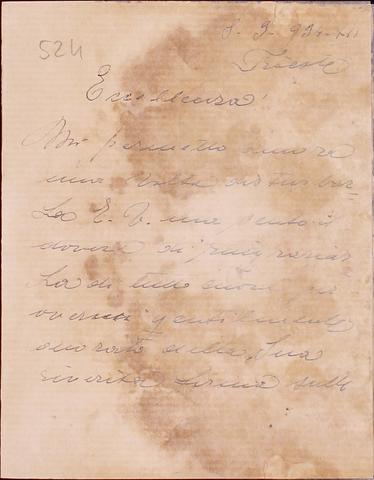 524
Trieste
Eccellenza!
Mi permetto ancora
una volta distur bar
La E. V. ma sento il
dovere di ringraziar
La di tutto cuore
gentilmente
onorato della Sua
riverita firma sulle